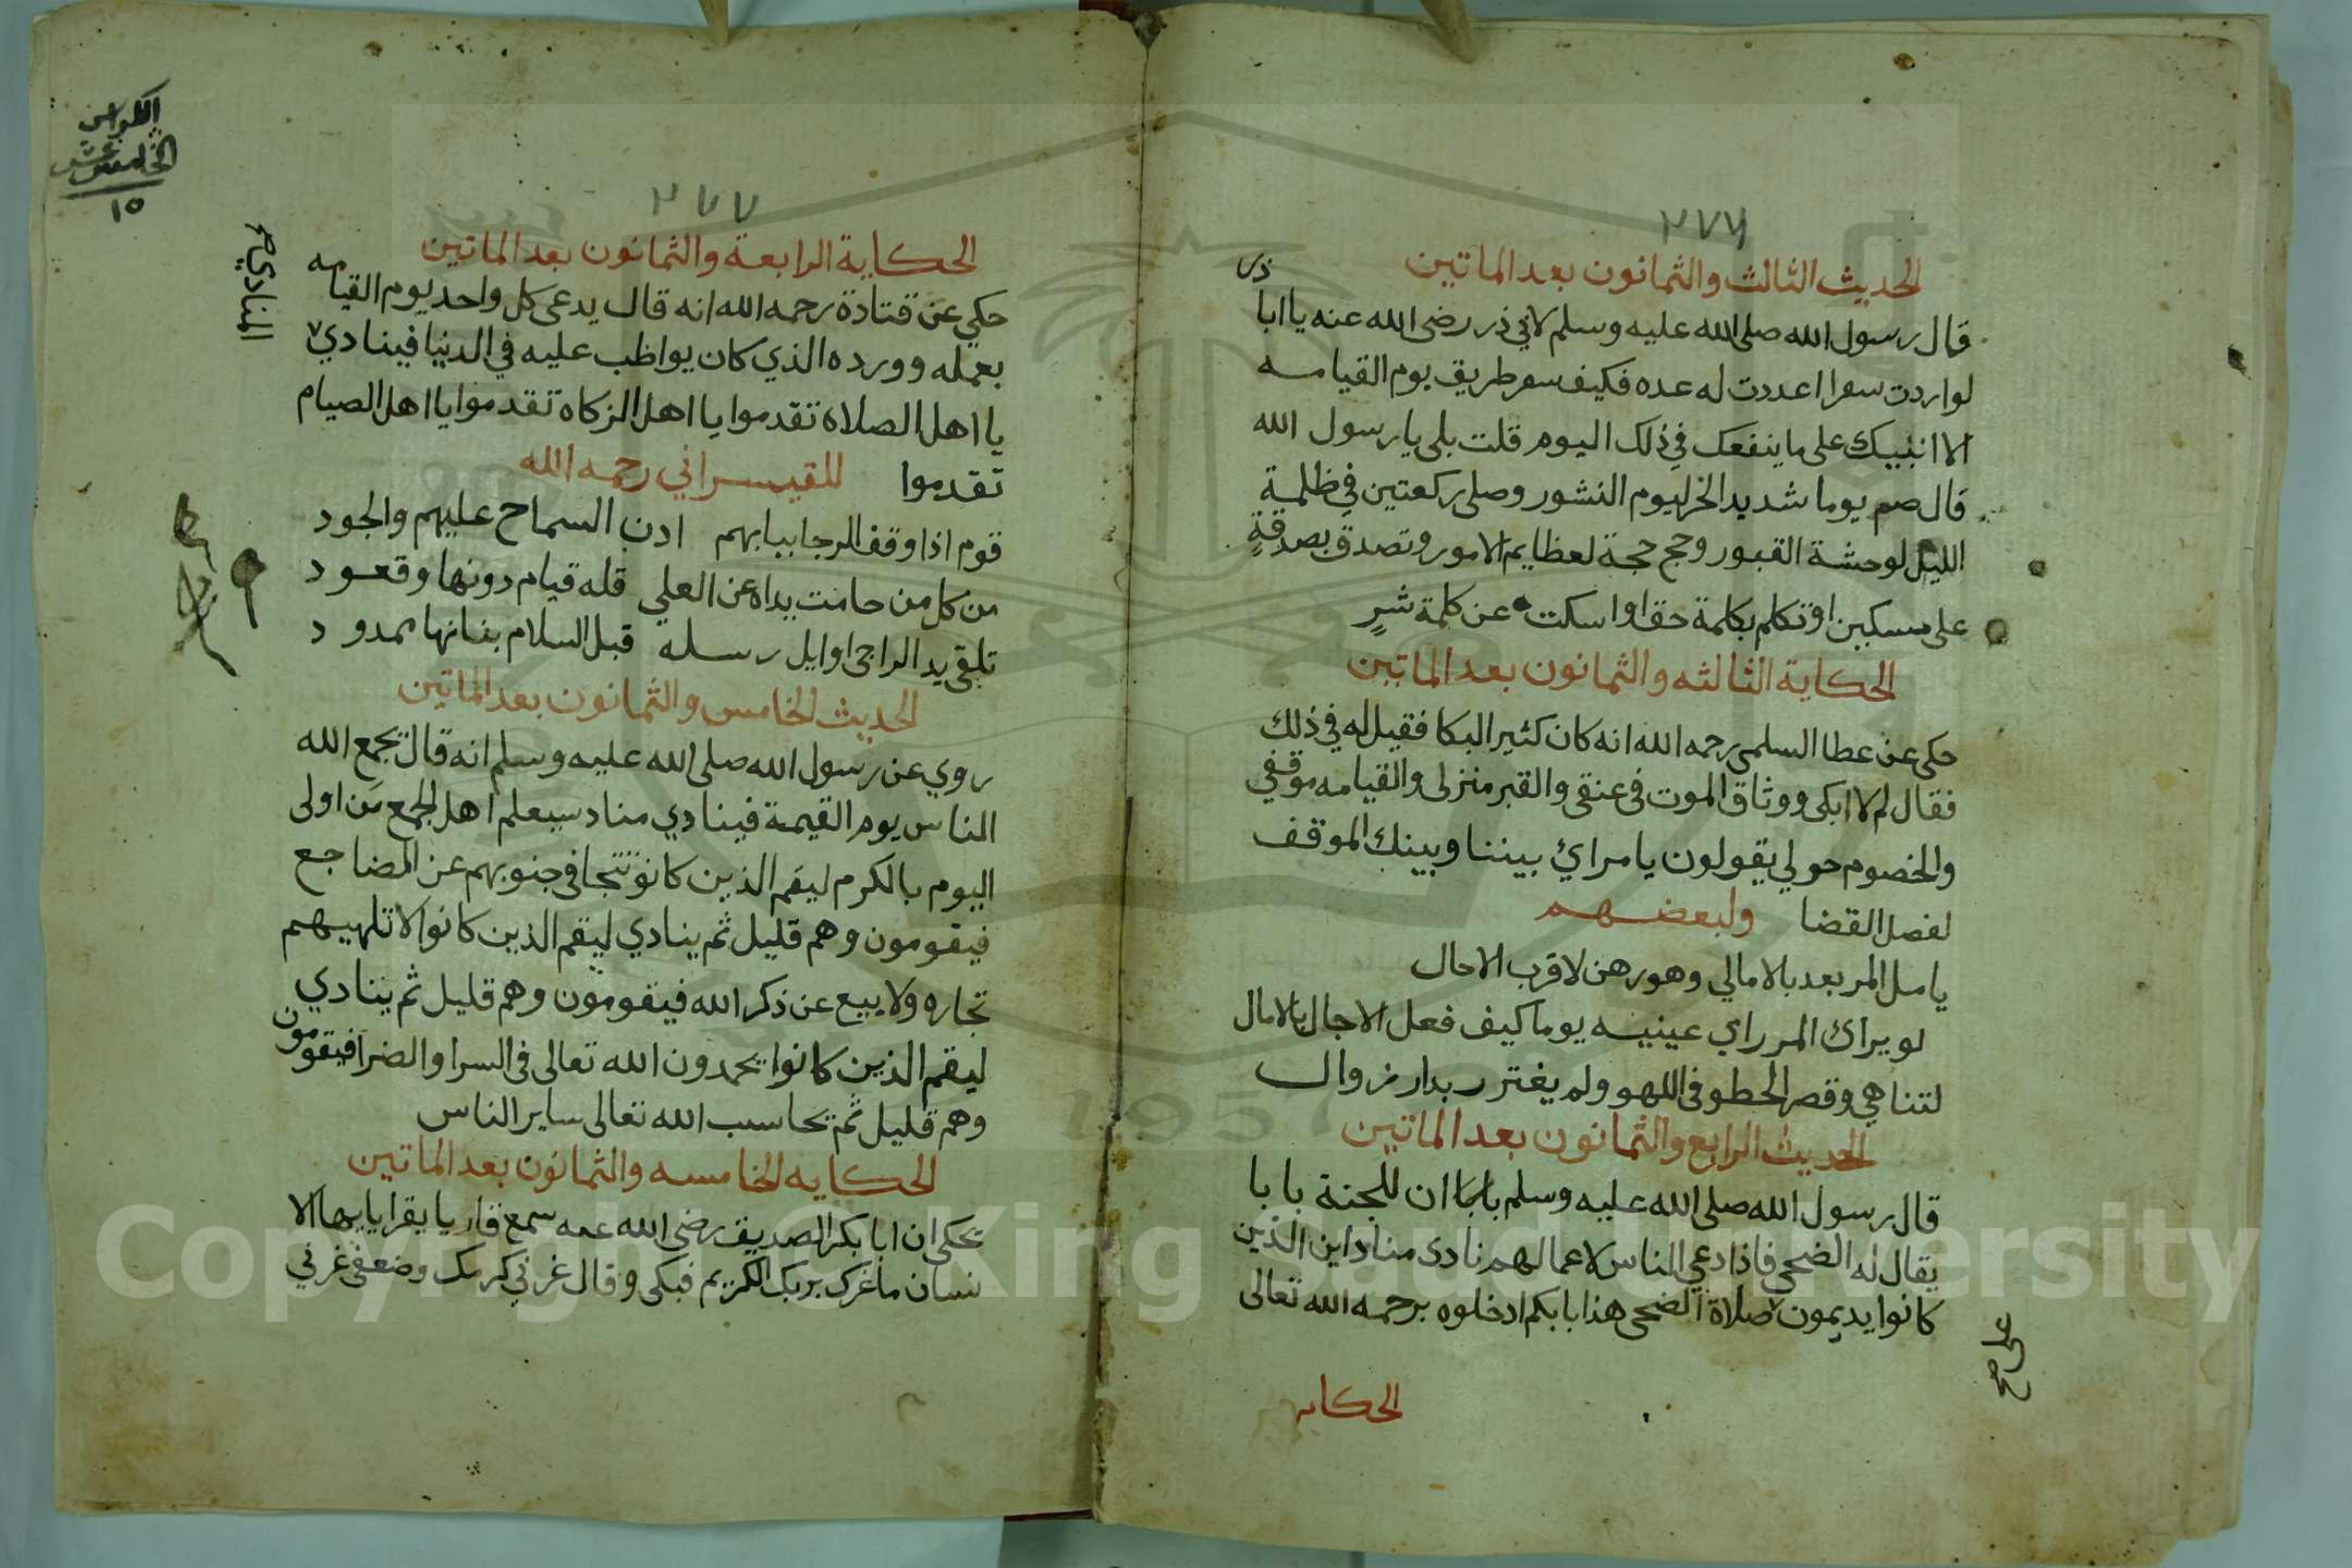 ٢٧٦
الحديث الثالث والثمانون بعد الماتين
قال رسول الله صلى الله عليه وسلم لابي ذر رضى الله عنه يا ابا
ذر
لو اردت سفرا اعددت له عده فكيف سفر طريق يوم القيامه
الا انبيك على ما ينفعك في ذلك اليوم قلت بلى يا رسول الله
قال صم يوما شديد الحر ليوم النشور وصلى ركعتين في ظلمة
الليل لوحشة القبور وحج حجة لعظايم الامور وتصدق بصدقةٍ
على مسكين او تكلم بكلمة حق او اسكت عن كلمة شرٍ
الحكاية الثالثه والثمانون بعد الماتين
حكى عن عطا السلمى رحمه الله انه كان كثير البكا فقيل له في ذلك
فقال لم لا ابكى ووثاق الموت فى عنقى والقبر منزلى والقيامه موقفي
والخصوم حولي يقولون يا مراي بيننا وبينك الموقف
لفصل القضا ولبعضهم
يامل المر بعد بالامالي وهو رهن لاقرب الاحال
لو يراك المر راي عينيه يوما كيف فعل الاجال بالامال
لتناهي وقصر الخطو فى اللهو ولم يغترر بدار زوال
الحديث الرابع والثمانون بعد الماتين
قال رسول الله صلى الله عليه وسلم بابا ان للجنة بابا
يقال له الضحى فاذا دعي الناس لاعمالهم نادى مناد اين الذين
كانوا يديمون صلاة الضحى هذا بابكم ادخلوه برحمه الله تعالى
على صح
الحكايه
الكراس
الخامس عشر
١٥
٢٧٧
الحكاية الرابعة والثمانون بعد الماتين
حكي عن قتادة رحمه الله انه قال يدعى كل واحد يوم القيامه
بعمله وورده الذي كان يواظب عليه في الدنيا فينادي
المنادي صح
يا اهل الصلاة تقدموا يا اهل الزكاه تقدموا يا اهل الصيام
تقدموا للقيسراني رحمه الله
قوم اذا وقف الرجا ببابهم ادن السماح عليهم والجود
من كل من حامت يداه عن العلي قله قيام دونها وقعود
تلقي يد الراجى اوايل رسله قبل السلام بفنانها ممدود
الحديث الخامس والثمانون بعد الماتين
روي عن رسول الله صلى الله عليه وسلم انه قال يجمع الله
الناس يوم القيمة فينادي مناد سيعلم اهل الجمع من اولى
اليوم بالكرم ليقم الذين كانو تتجافى جنوبهم عن المضاجع
فيقومون وهم قليل ثم ينادي ليقم الذين كانوا لا تلهيهم
تجاره ولا بيع عن ذكر الله فيقومون وهم قليل ثم ينادي
ليقم الذين كانوا يحمدون الله تعالى فى السرا والضرا فيقومون
وهم قليل ثم يحاسب الله تعالى ساير الناس
الحكايه الخامسه والثمانون بعد الماتين
يحكى ان ابا بكر الصديق رضى الله عنه سمع قاريا يقرا يايها الا
نسان ما غرك بربك الكريم فبكى وقال غرني كرمك وضعفى غرني
Copyright © King Saud University
1957